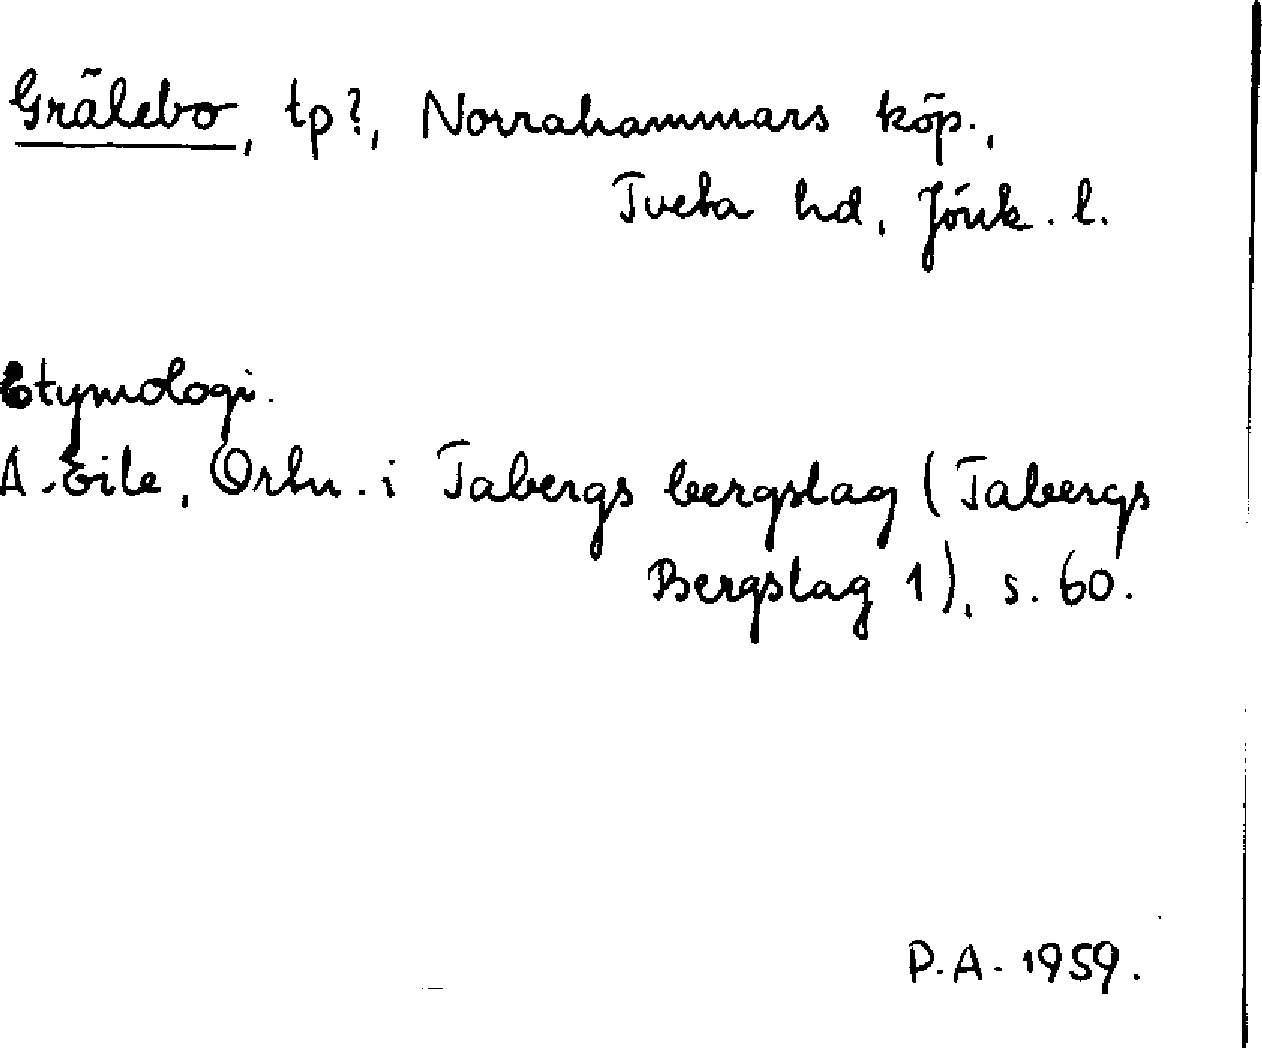 Grälebo, tp?, Norrahammars köp.,
Tveta hd, Jönk. l.
Etymologi.
A. Eile, Ortn. i Tabergs bergslag (Tabergs
Bergslag 1), s. 60.
P.A. 1959.